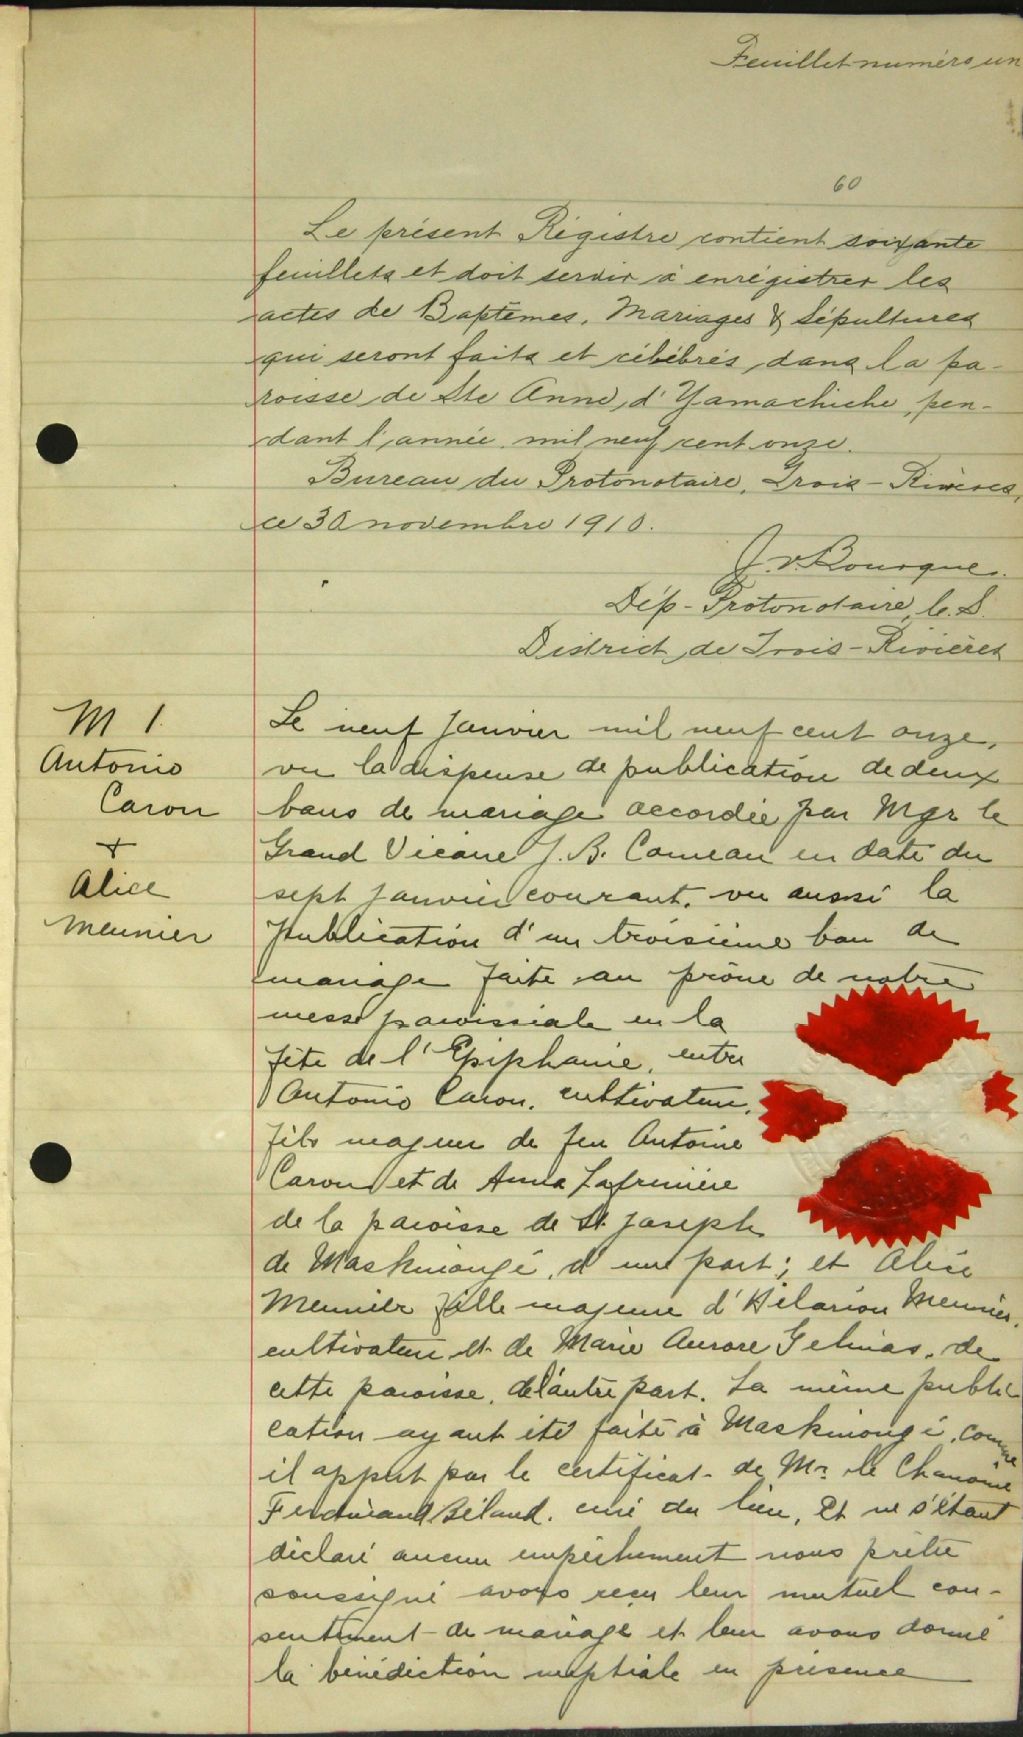 Feuillet numéro un
60
Le présent Régistre contient soixante
feuillets et doit servir à enrégistrer les
actes de Baptêmes, Mariages & Sépultures
qui seront faits et célébrés dans la pa-
roisse de Ste Anne d'Yamachiche, pen-
dant l'année mil neuf cent onze.
Bureau du Protonotaire, Trois-Rivières,
ce 30 novembre 1910.
J. V. Bourque.
Dép-Protonotaire, C. S.
District de Trois-Rivières
M 1.
Antonio
Caron
+
Alice
Meunier
Le neuf janvier mil neuf cent onze,
vu la dispense de publication de deux
bans de mariage accordée par Mgr le
Grand Vicaire J. B. Comeau en date du
sept janvier courant, vu aussi la
publication d'un troisième ban de
mariage faite au prône de notre
messe paroissiale en la
fête de l'Epiphanie, entre
Antonio Caron, cultivateur,
fils majeur de feu Antoine
Caron et de Anna Lafrenière
de la paroisse de St Joseph
de Maskinongé, d'une part; et Alice
Meunier fille majeure d'Hilarion Meunier,
cultivateur et de Marie Aurore Gelinas, de
cette paroisse, de l'autre part. La même publi
cation ayant été faite à Maskinongé, comme
il appert par le certificat de Mr. le Chanoine
Ferdinand Béland, curé du lieu, Et ne s'étant
déclaré aucun empêchement nous prêtre
soussigné avons reçu leur mutuel con-
sentiment de mariage et leur avons donné
la bénédiction nuptiale en présence